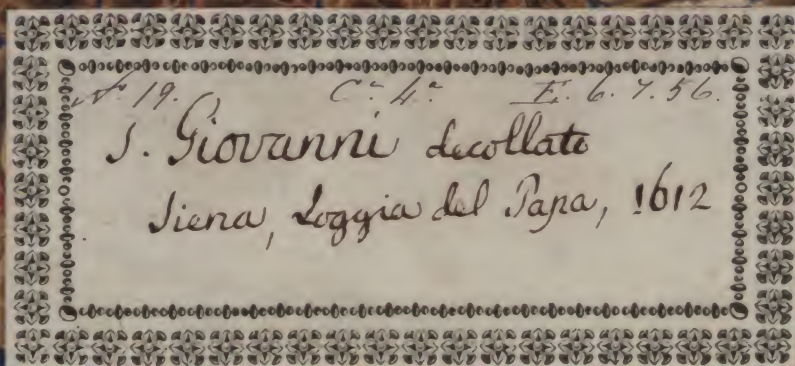 N.° 19. C.ª 4.ª E. 6. 7. 56.
S. Giovanni decollato
Siena, Loggia del Papa, 1612